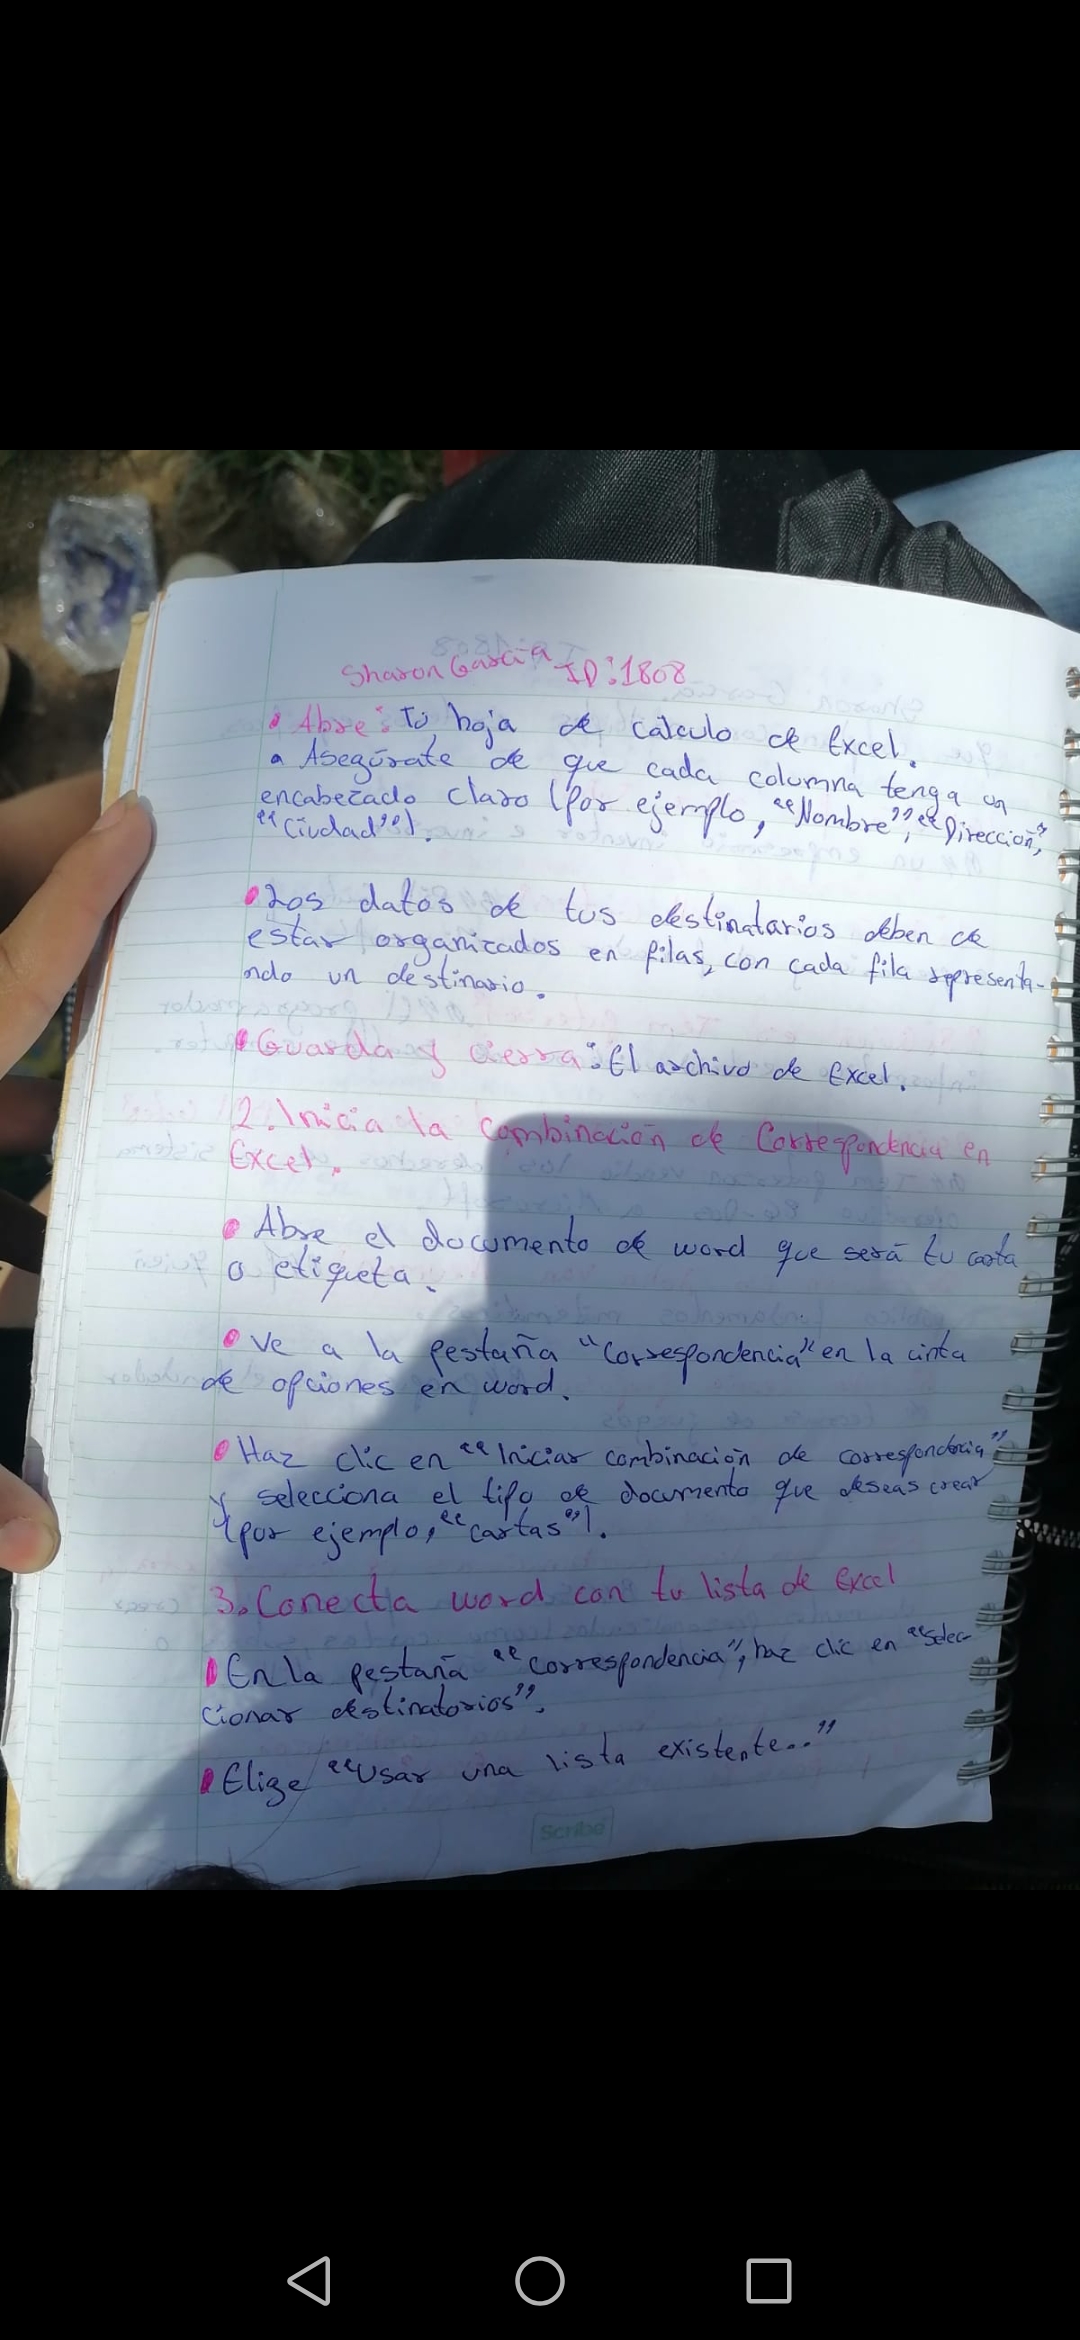 Sharon García ID:1808
• Abre: Tú hoja de cálculo de Excel.
• Asegúrate de que cada columna tenga un
encabezado claro (por ejemplo, "Nombre", "Dirección",
"Ciudad").
• Los datos de tus destinatarios deben de
estar organizados en filas, con cada fila representa-
ndo un destinario.
• Guarda y cierra: El archivo de Excel.
2. Inicia la combinación de Correspondencia en
Excel.
• Abre el documento de word que será tu carta
o etiqueta.
• Ve a la pestaña "Correspondencia" en la cinta
de opciones en word.
• Haz clic en "Iniciar combinación de correspondencia"
y selecciona el tipo de documento que deseas crear
(por ejemplo, "cartas").
3. Conecta word con tu lista de Excel
• En la pestaña "correspondencia", haz clic en "Selec-
cionar destinatarios".
• Elige "Usar una lista existente..."
Scribe